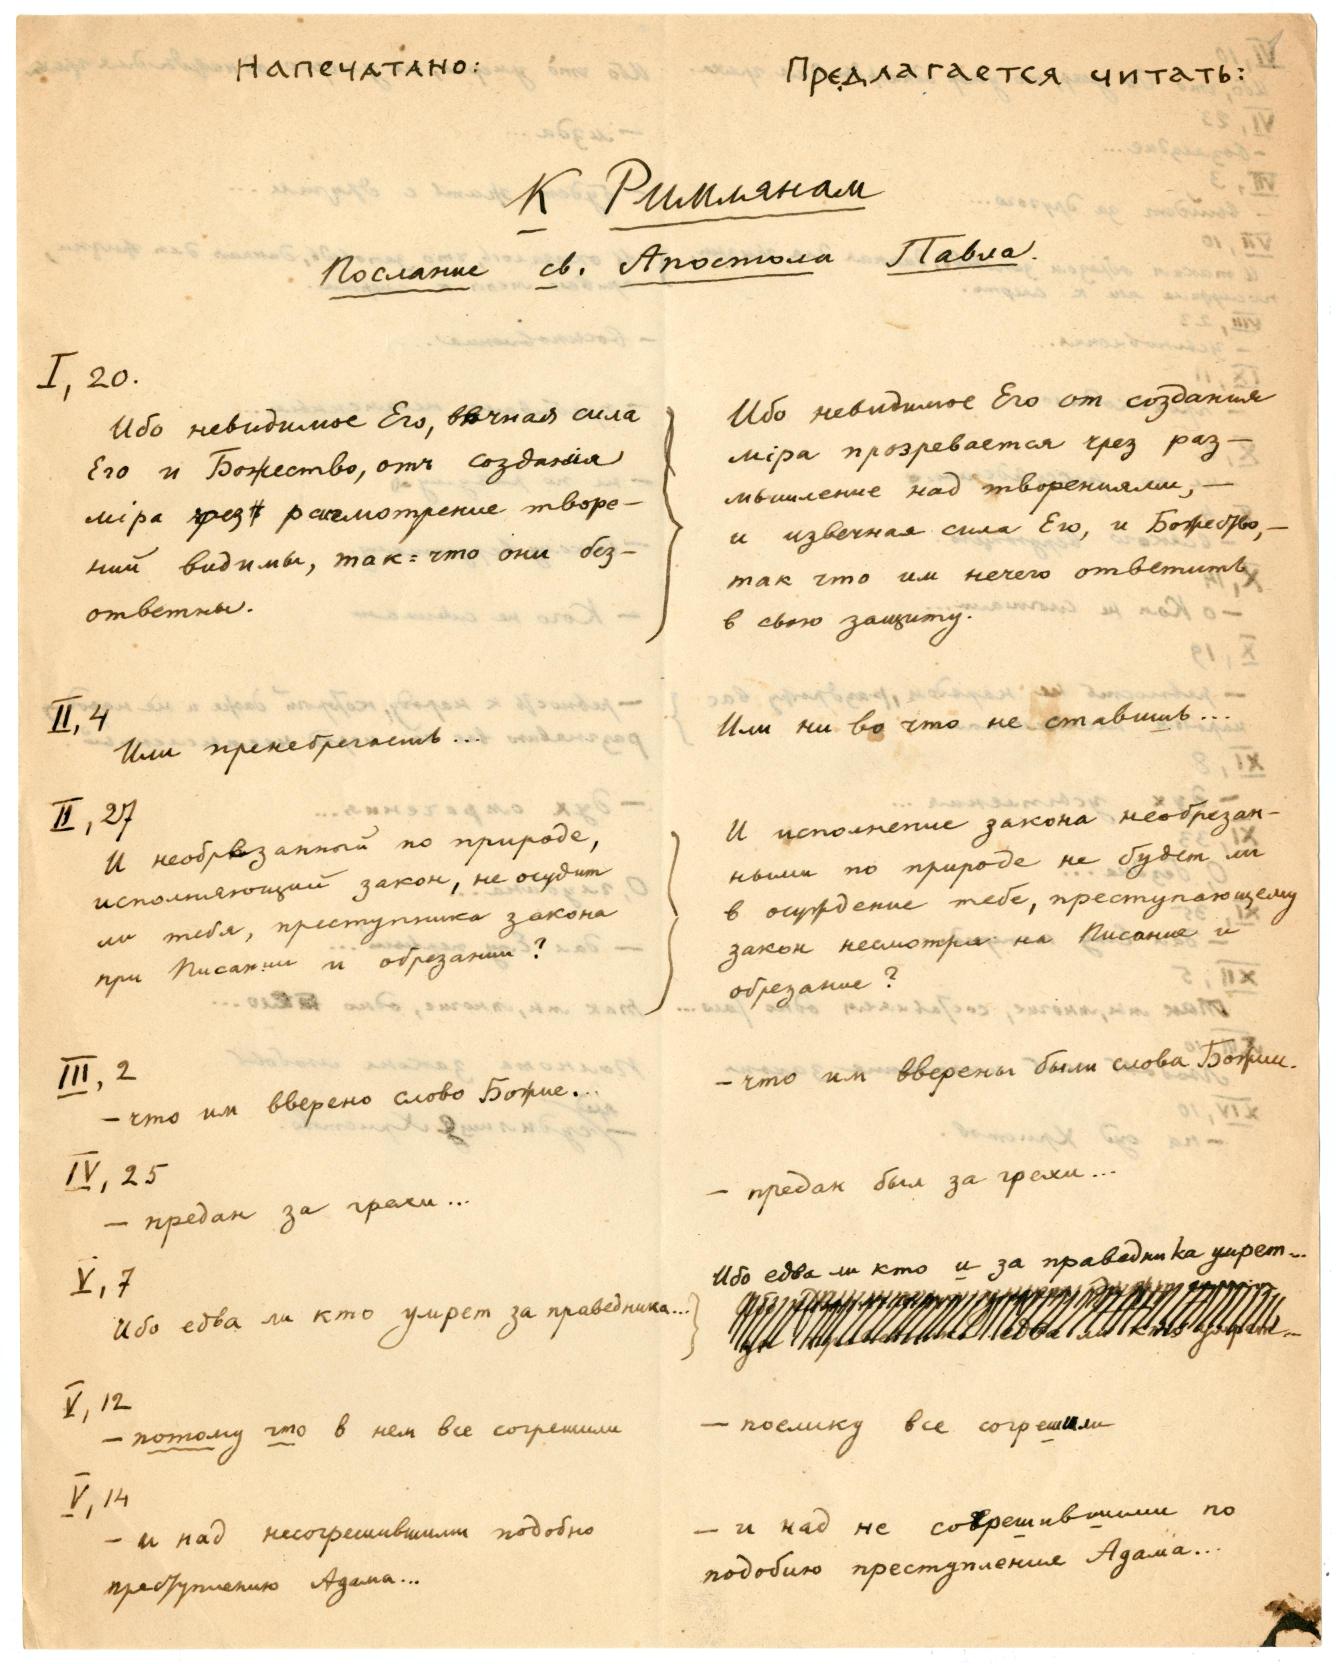 Напечатано:
Предлагается читать:
К Римлянам
Послание св. Апостола Павла.
I, 20.
Ибо невидимое Его, вѣчная сила
Его и Божество, отъ создания
міра чрезъ рассмотрение творе-
ний видимы, так=что они без-
ответны.
Ибо невидимое Его от создания
міра прозревается чрез раз-
мышление над творениями, —
и извечная сила Его, и Божество, —
так что им нечего ответить
в свою защиту.
II, 4
Или пренебрегаешь...
Или ни во что не ставишь...
II, 27
И необрезанный по природе,
исполняющий закон, не осудит
ли тебя, преступника закона
при Писании и обрезании?
И исполнение закона необрезан-
ными по природе не будет ли
в осуждение тебе, преступающему
закон несмотря на Писание и
обрезание?
III, 2
— что им вверено слово Божие...
— что им вверены были слова Божии.
IV, 25
— предан за грехи...
— предан был за грехи...
V, 7
Ибо едва ли кто умрет за праведника...
Ибо едва ли кто и за праведника умрет...
едва ли кто умрет...
V, 12
— потому что в нем все согрешили
— поелику все согрешили
V, 14
— и над несогрешившими подобно
преступлению Адама...
— и над не согрешившими по
подобию преступления Адама...